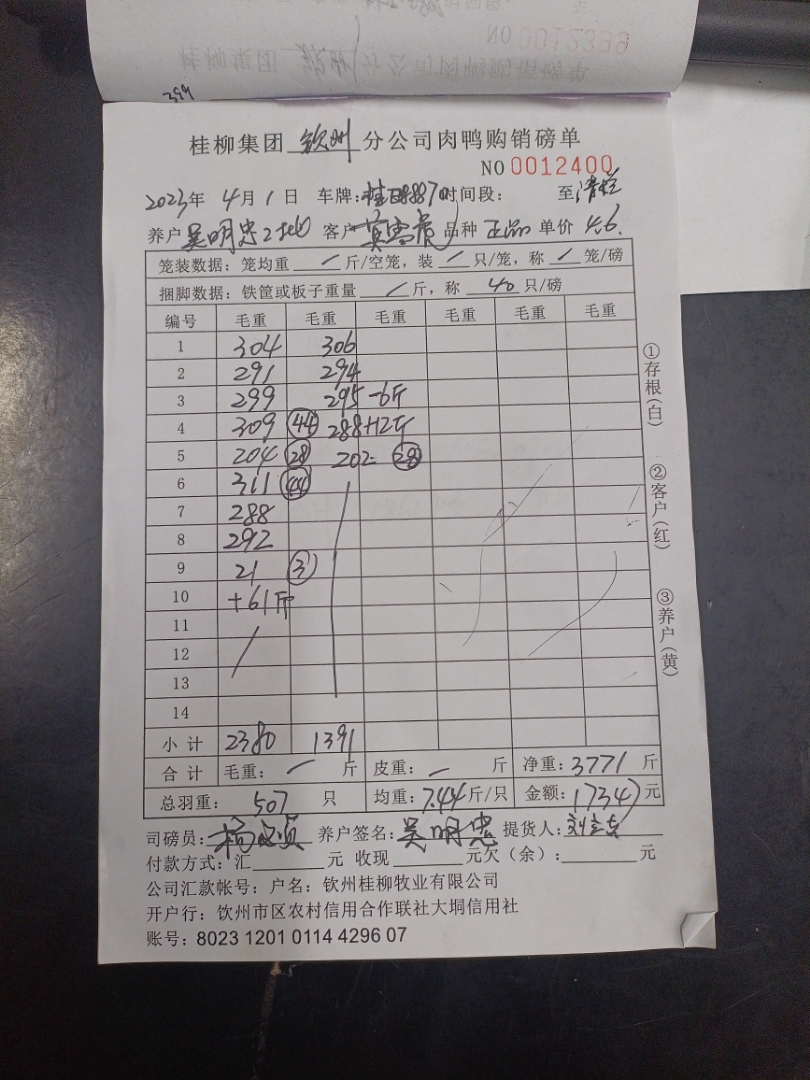 NO 0012399
399
桂柳集团 钦州 分公司肉鸭购销磅单
NO 0012400
2023年 4月 1 日 车牌: 时间段: 至
养户 吴明忠2地 客户 品种 正品 单价 4.6.
笼装数据: 笼均重 / 斤/空笼, 装 / 只/笼, 称 / 笼/磅
捆脚数据: 铁筐或板子重量 / 斤, 称 40 只/磅
编号 毛重 毛重 毛重 毛重 毛重 毛重
1 304 306
2 291 294
3 299 295 -6斤
4 309 (44) 288+12斤
5 204 (28) 202 (28)
6 311 (44)
7 288
8 292
9 21 (3)
10 +61斤
11
12
13
14
小计 2380 1391
合计 毛重: 斤 皮重: 斤 净重: 3771 斤
总羽重: 507 只 均重: 7.44 斤/只 金额: 17347 元
司磅员: 养户签名: 吴明忠 提货人:
付款方式: 汇 元 收现 元欠(余): 元
公司汇款帐号: 户名: 钦州桂柳牧业有限公司
开户行: 钦州市区农村信用合作联社大垌信用社
账号: 8023 1201 0114 4296 07
①存根(白)
②客户(红)
③养户(黄)